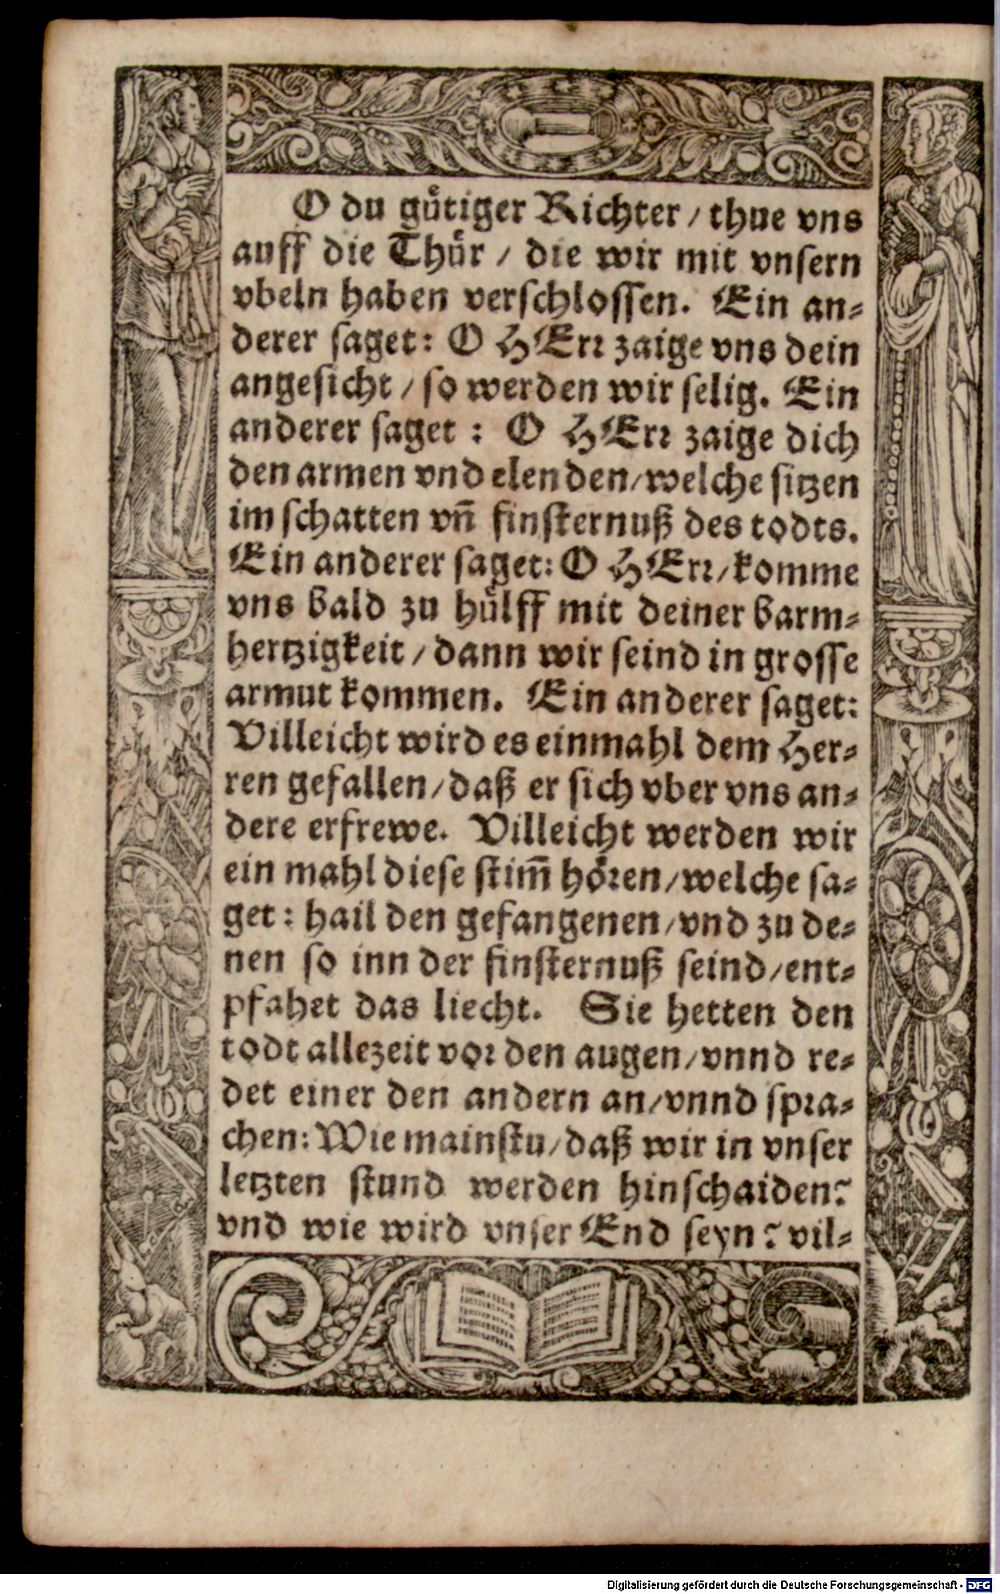 O du gütiger Richter / thue vns
auff die Thür / die wir mit vnsern
vbeln haben verschlossen. Ein an-
derer saget: O HErr zaige vns dein
angesicht / so werden wir selig. Ein
anderer saget : O HErr zaige dich
den armen vnd elenden/welche sitzen
im schatten vn̄ finsternuß des todts.
Ein anderer saget: O HErr/komme
vns bald zu hülff mit deiner barm-
hertzigkeit / dann wir seind in grosse
armut kommen. Ein anderer saget:
Villeicht wird es einmahl dem Her-
ren gefallen/daß er sich vber vns an-
dere erfrewe. Villeicht werden wir
ein mahl diese stim̄ hören/welche sa-
get: hail den gefangenen/vnd zu de-
nen so inn der finsternuß seind/ent-
pfahet das liecht. Sie hetten den
todt allezeit vor den augen/vnnd re-
det einer den andern an/vnnd spra-
chen: Wie mainstu/daß wir in vnser
letzten stund werden hinschaiden?
vnd wie wird vnser End seyn? vil-
Digitalisierung gefördert durch die Deutsche Forschungsgemeinschaft - DFG